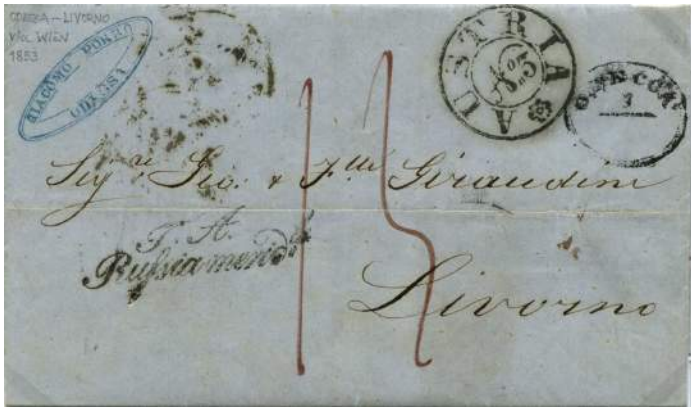 ODESSA – LIVORNO
VIA WIEN
1853
GIACOMO PORRO
ODESSA
AUSTRIA
No 5
ОДЕССА
3
13
Sigri Gio. & Flli Giraudini
T. A.
Russia merid le
Livorno